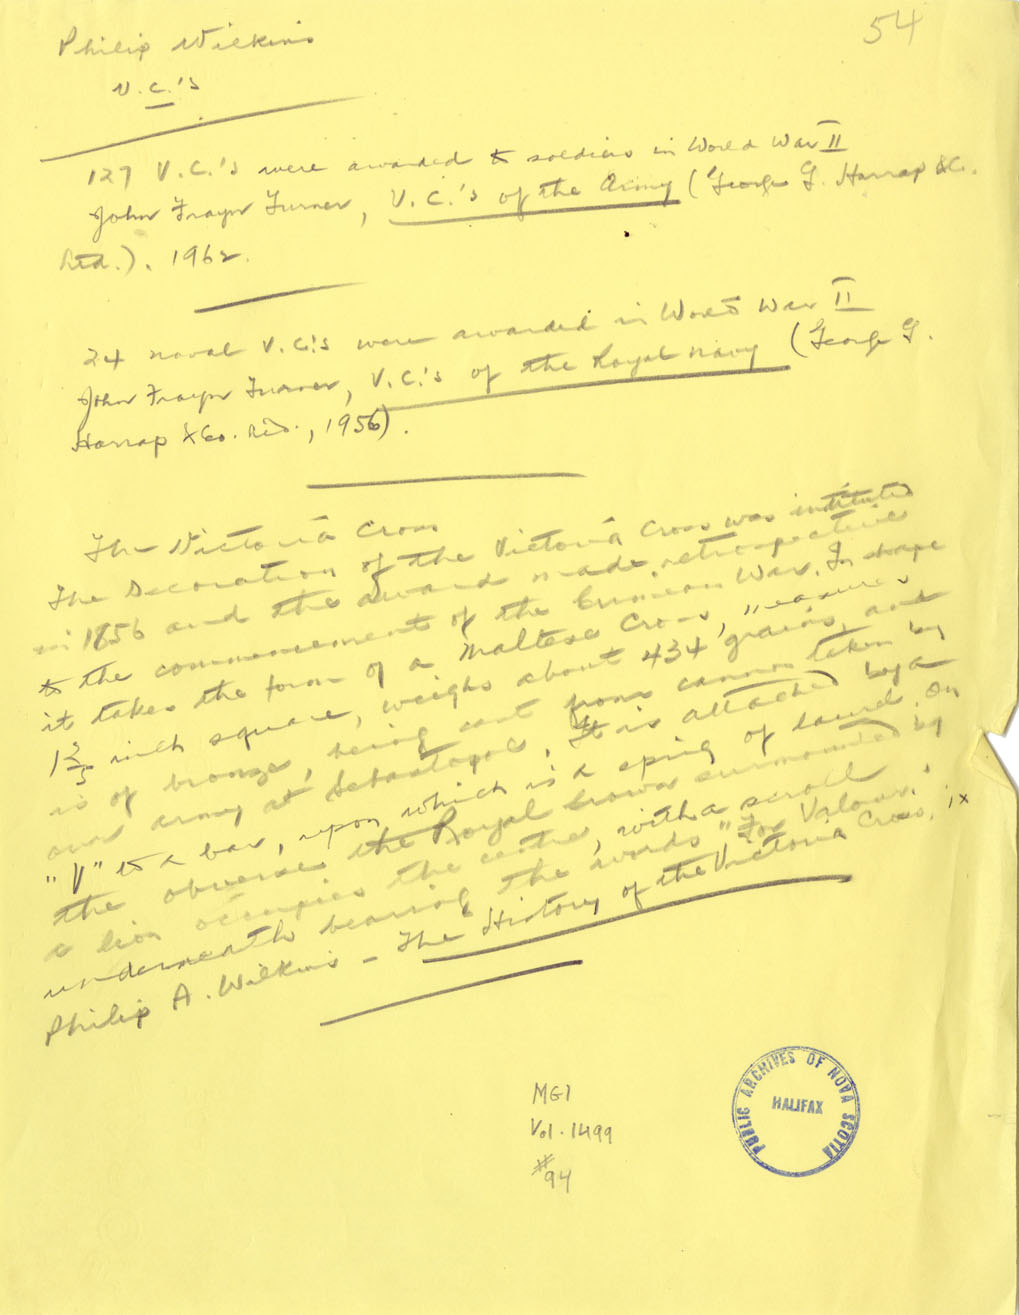 54
Philip Wilkins
V.C.'s
127 V.C.'s were awarded to soldiers in World War II
John Frayn Turner, V.C.'s of the Army (George G. Harrap & Co.
Ltd.), 1962.
24 naval V.C.'s were awarded in World War II
John Frayn Turner, V.C.'s of the Royal Navy (George G.
Harrap & Co. Ltd., 1956).
The Victoria Cross
The Decoration of the Victoria Cross was instituted
in 1856 and the award made retrospective
to the commencement of the Crimean War. In shape
it takes the form of a Maltese Cross, measures
1 2/5 inch square, weighs about 434 grains, and
is of bronze, being cast from cannon taken by
our army at Sebastopol. It is attached by a
"V" to a bar, upon which is a sprig of laurel. On
the obverse the Royal Crown surmounted by
a lion occupies the centre, with a scroll
underneath bearing the words "For Valour."
Philip A. Wilkins - The History of the Victoria Cross, ix
MG1
Vol. 1499
#94
PUBLIC ARCHIVES OF NOVA SCOTIA
HALIFAX